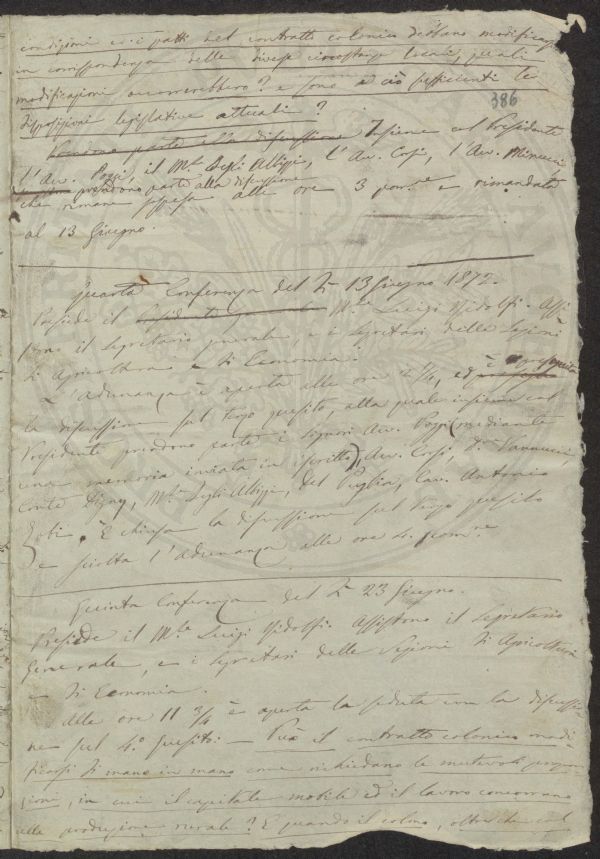 condizioni ed i patti del contratto colonico debbano modificarsi
in corrispondenza delle diverse circostanze locali, quali
modificazioni occorrerebbero? e sono a ciò sufficienti le
disposizioni legislative attuali?
386
Prendono parte alla discussione Insieme col Presidente
l'Avv. Pozzi, il M.se Degli Albizzi, l'Av. Corsi, l'Avv. Minucci
prendono parte alla discussione
che rimane sospesa alle ore 3 pom.ne e rimandata
al 13 Giugno.
Quarta Conferenza del dì 13 Giugno 1872.
Presiede il M.se Luigi Ridolfi. Assi
stono il Segretario generale, e i Segretari delle Sezioni
di Agricoltura e di Economia.
L'adunanza è aperta alle ore 2 1/4, ed è proseguita
la discussione sul terzo quesito, alla quale insieme col
Presidente prendono parte i Signori Avv. Pozzi (mediante
una memoria inviata in iscritto), Avv. Corsi, D.r Vannucci,
Conte Digny, M.se Degli Albizzi, Del Puglia, Cav. Antonio
Zobi. È chiusa la discussione sul terzo quesito
e sciolta l'adunanza alle ore 4 pom.ne
Quinta Conferenza del dì 23 Giugno.
Presiede il M.se Luigi Ridolfi. Assistono il Segretario
Generale, e i Segretari delle Sezioni di Agricoltura
e di Economia.
Alle ore 11 3/4 è aperta la seduta con la discussio
ne sul 4.o quesito: — Può il contratto colonico modi
ficarsi di mano in mano come richiedano le mutevoli propor
zioni, in cui il capitale mobile ed il lavoro concorrono
alla produzione rurale? E quando il colono, oltre che col